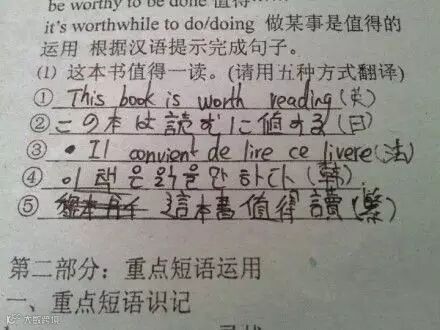 be worthy to be done 值得……
it's worthwhile to do/doing 做某事是值得的
运用 根据汉语提示完成句子。
(1) 这本书值得一读。(请用五种方式翻译)
① This book is worth reading (英)
② この本は読むに値する (日)
③ • Il convient de lire ce livere (法)
④ 이 책은 읽을만 하다 (韩)
⑤ 這本書值得讀 (繁)
第二部分：重点短语运用
一、重点短语识记